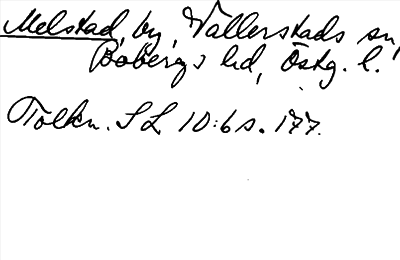 Melstad, by, Vallerstads sn,
Bobergs hd, Östg. l.
Tolkn. SL 10:6 s. 177.